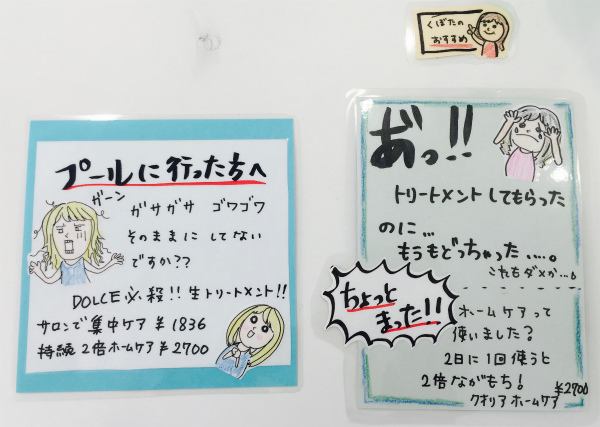 くぼたの
おすすめ
プールに行った方へ
ガーン
ガサガサ ゴワゴワ
そのままに してない
ですか??
DOLCE必殺!! 生トリートメント!!
サロンで集中ケア ¥1836
持続2倍ホームケア ¥2700
あっ!!
トリートメントしてもらった
のに…
もうもどっちゃった….。
これもダメか…。
ちょっと
まった!!
ホームケアって
使いました?
2日に1回使うと
2倍ながもち!
¥2700
クオリアホームケア